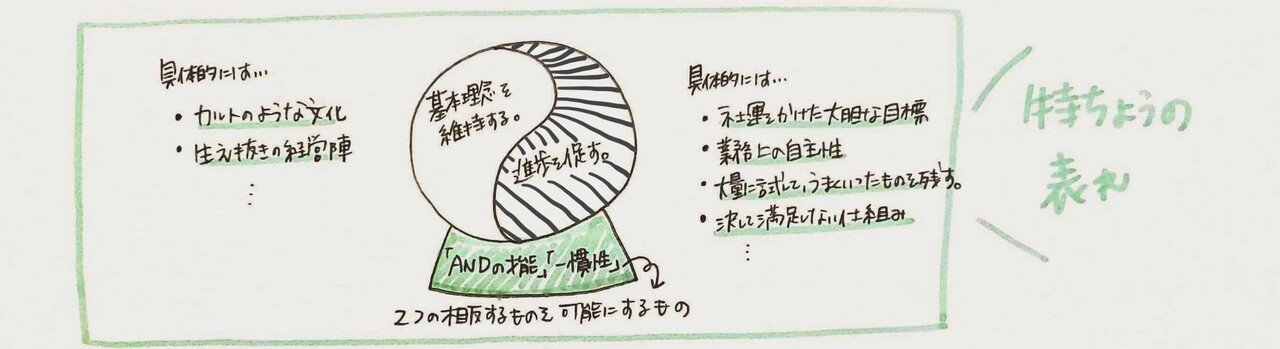 具体的には…
・カルトのような文化
・生え抜きの経営陣
⋮
基本理念を
維持する。
進歩を促す。
「ANDの才能」「一慣性」
2つの相反するものを可能にするもの
具体的には…
・社運をかけた大胆な目標
・業務上の自主性
・大量に試して、うまくいったものを残す。
・決して満足しない仕組み
⋮
持ちようの
表れ